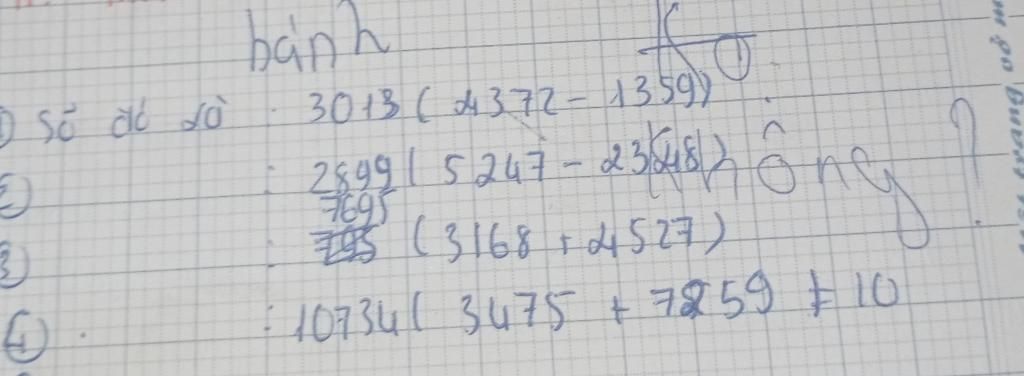 bánh
① Số đó là : 3013 ( 4372 - 1359)
② : 2899 ( 5247 - 2348)
không ?
7695
③ : 795 ( 3168 + 4527)
④ . : 10734 ( 3475 + 7259 + 10